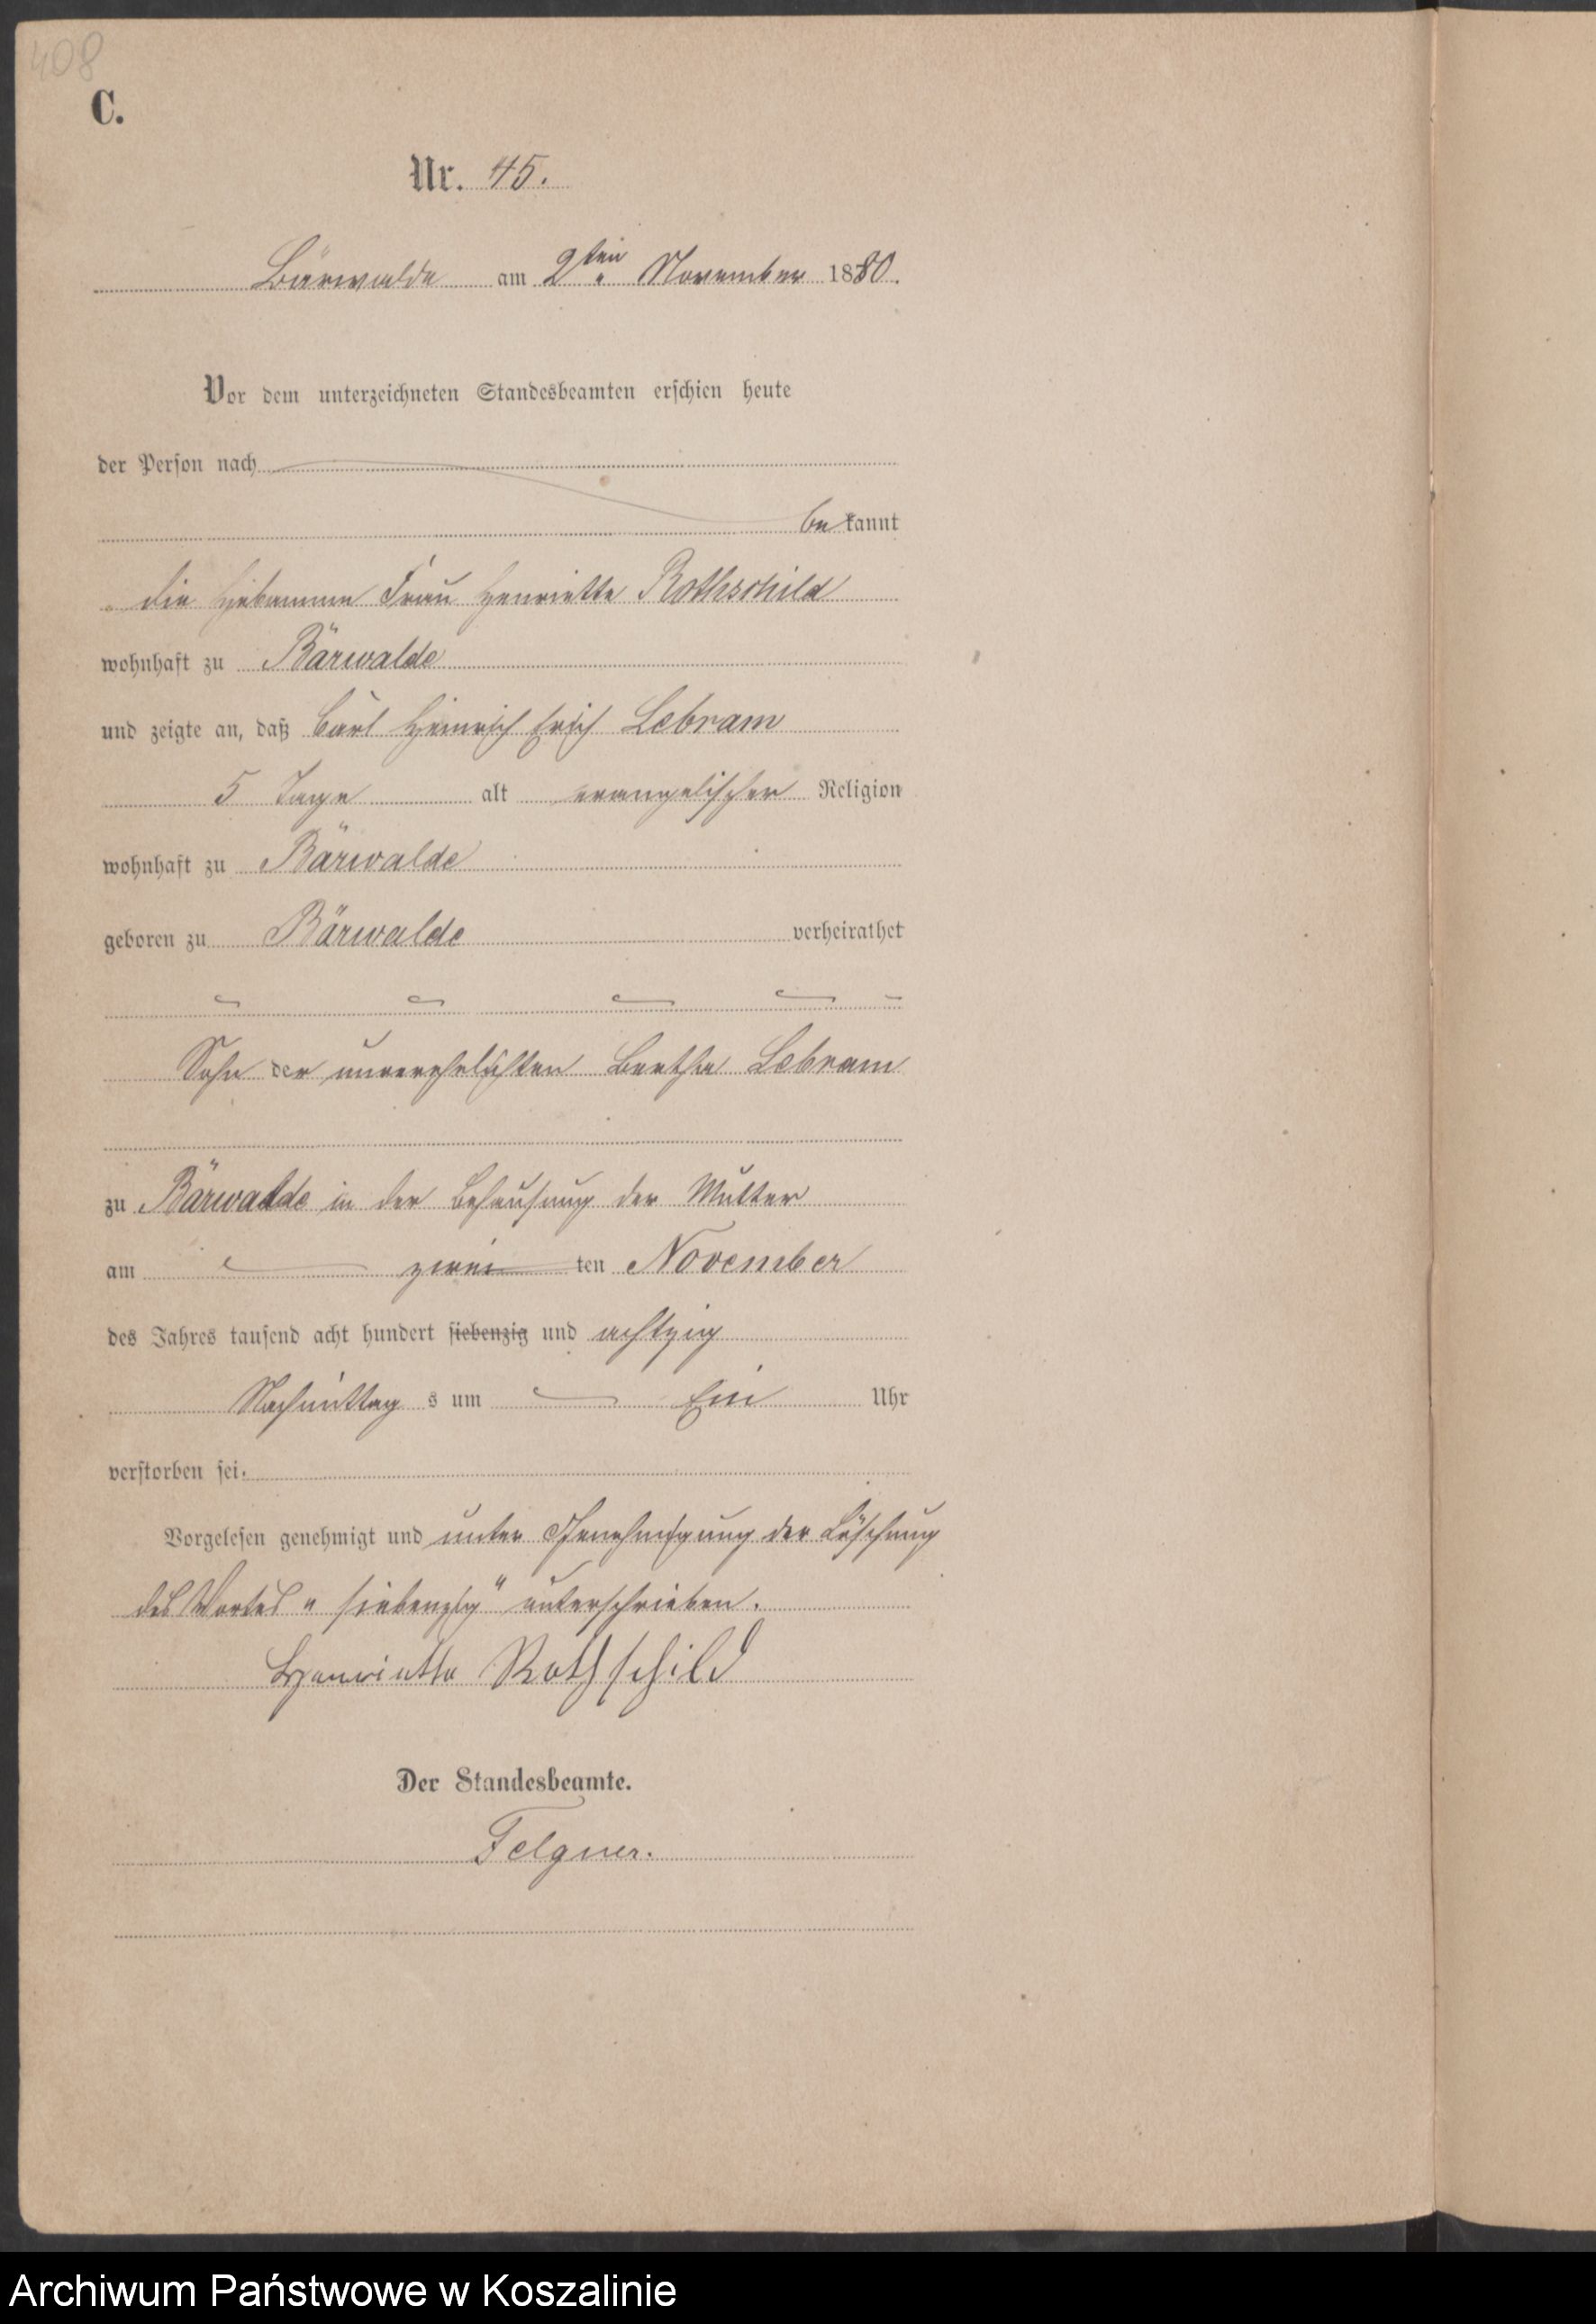 408
C.
Nr. 45.
Bärwalde am 2ten November 1880.
Vor dem unterzeichneten Standesbeamten erschien heute
der Person nach
bekannt
die Hebamme Frau Henriette Rothschild
wohnhaft zu Bärwalde
und zeigte an, daß Carl Heinrich Erich Lebram
5 Tage alt evangelischer Religion
wohnhaft zu Bärwalde
geboren zu Bärwalde verheirathet
Sohn der unverehelichten Bertha Lebram
zu Bärwalde in der Behausung der Mutter
am zwei ten November
des Jahres tausend acht hundert siebenzig und achtzig
Nachmittag s um Ein Uhr
verstorben sei.
Vorgelesen genehmigt und unter Genehmigung der Löschung
des Wortes "siebenzig" unterschrieben.
Henriette Rothschild
Der Standesbeamte.
Felgner.
Archiwum Państwowe w Koszalinie